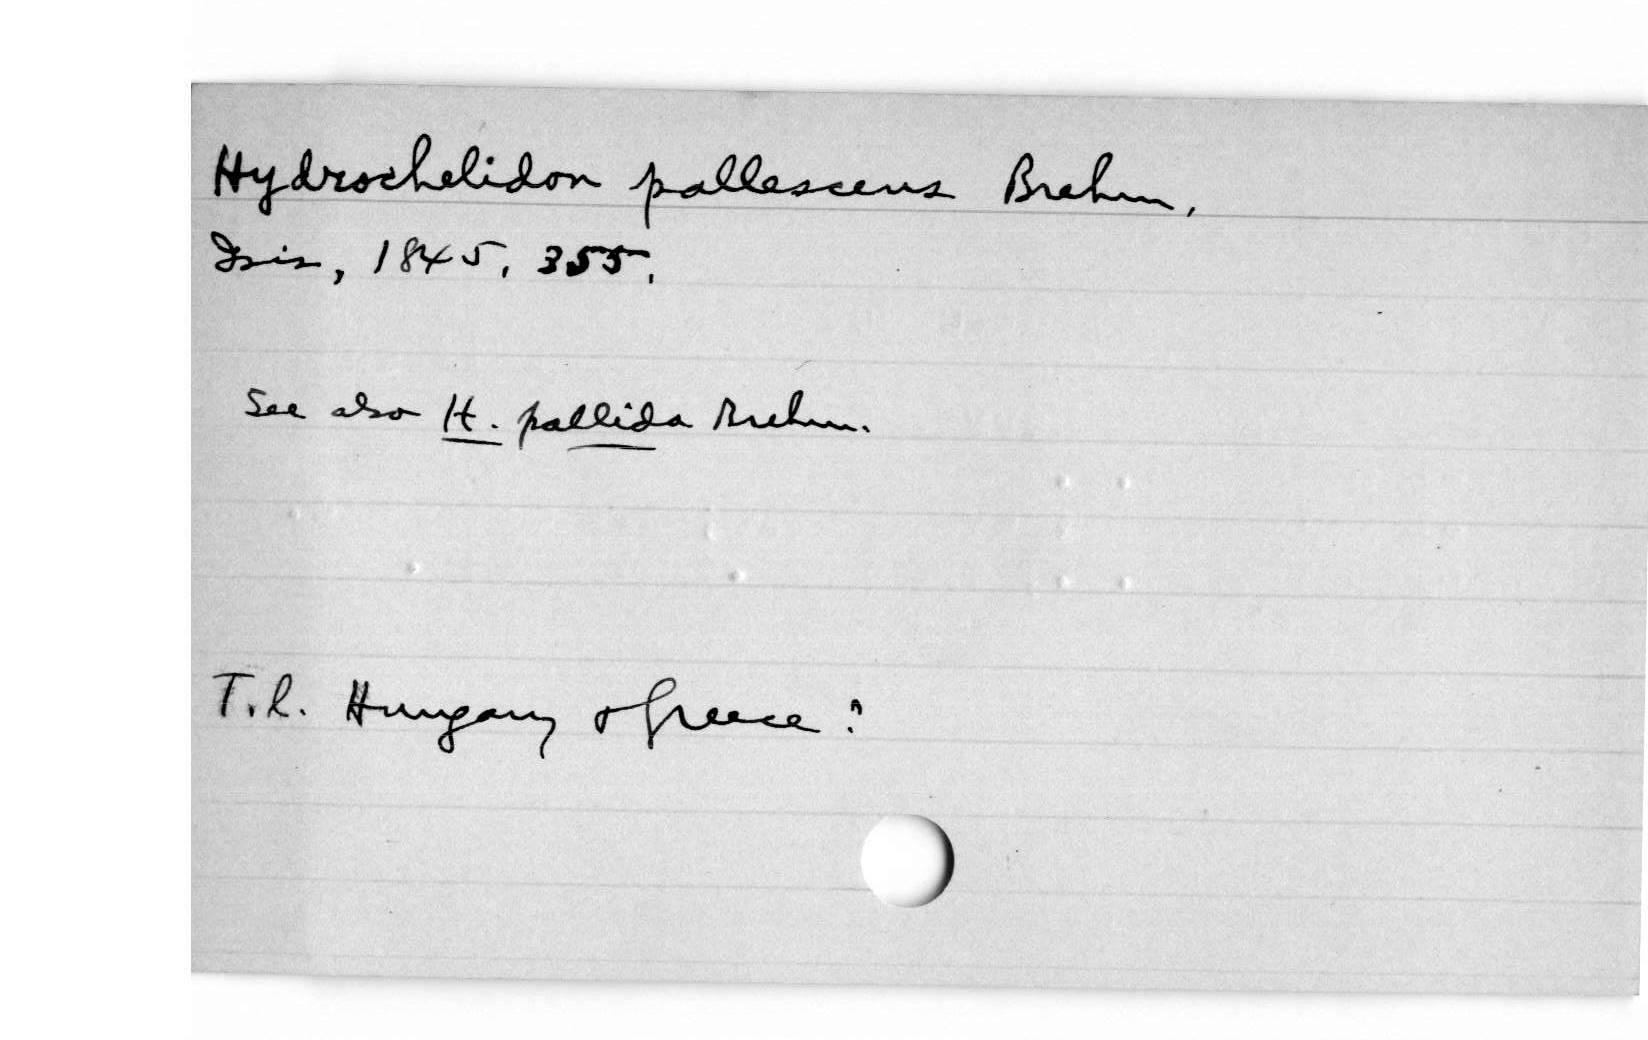 Hydrochelidon pallescens Brehm,
Isis, 1845, 355.
See also H. pallida Brehm.
T.l. Hungary & Greece?